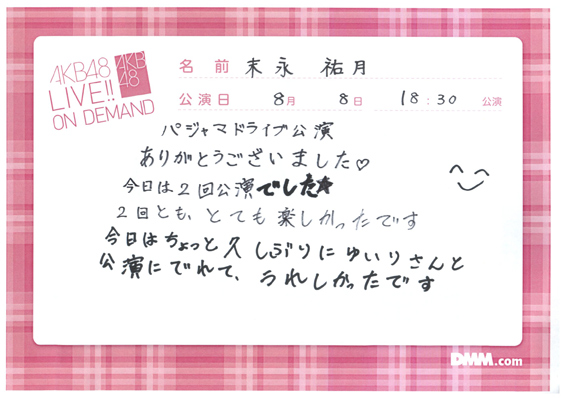 AKB48
LIVE!!
ON DEMAND
AKB
48
名前 末永 祐月
公演日 8月 8日 18:30 公演
パジャマドライブ公演
ありがとうございました♡
今日は2回公演でした★
2回とも、とても楽しかったです
今日はちょっと久しぶりにゆいりさんと
公演にでれて、うれしかったです
DMM.com